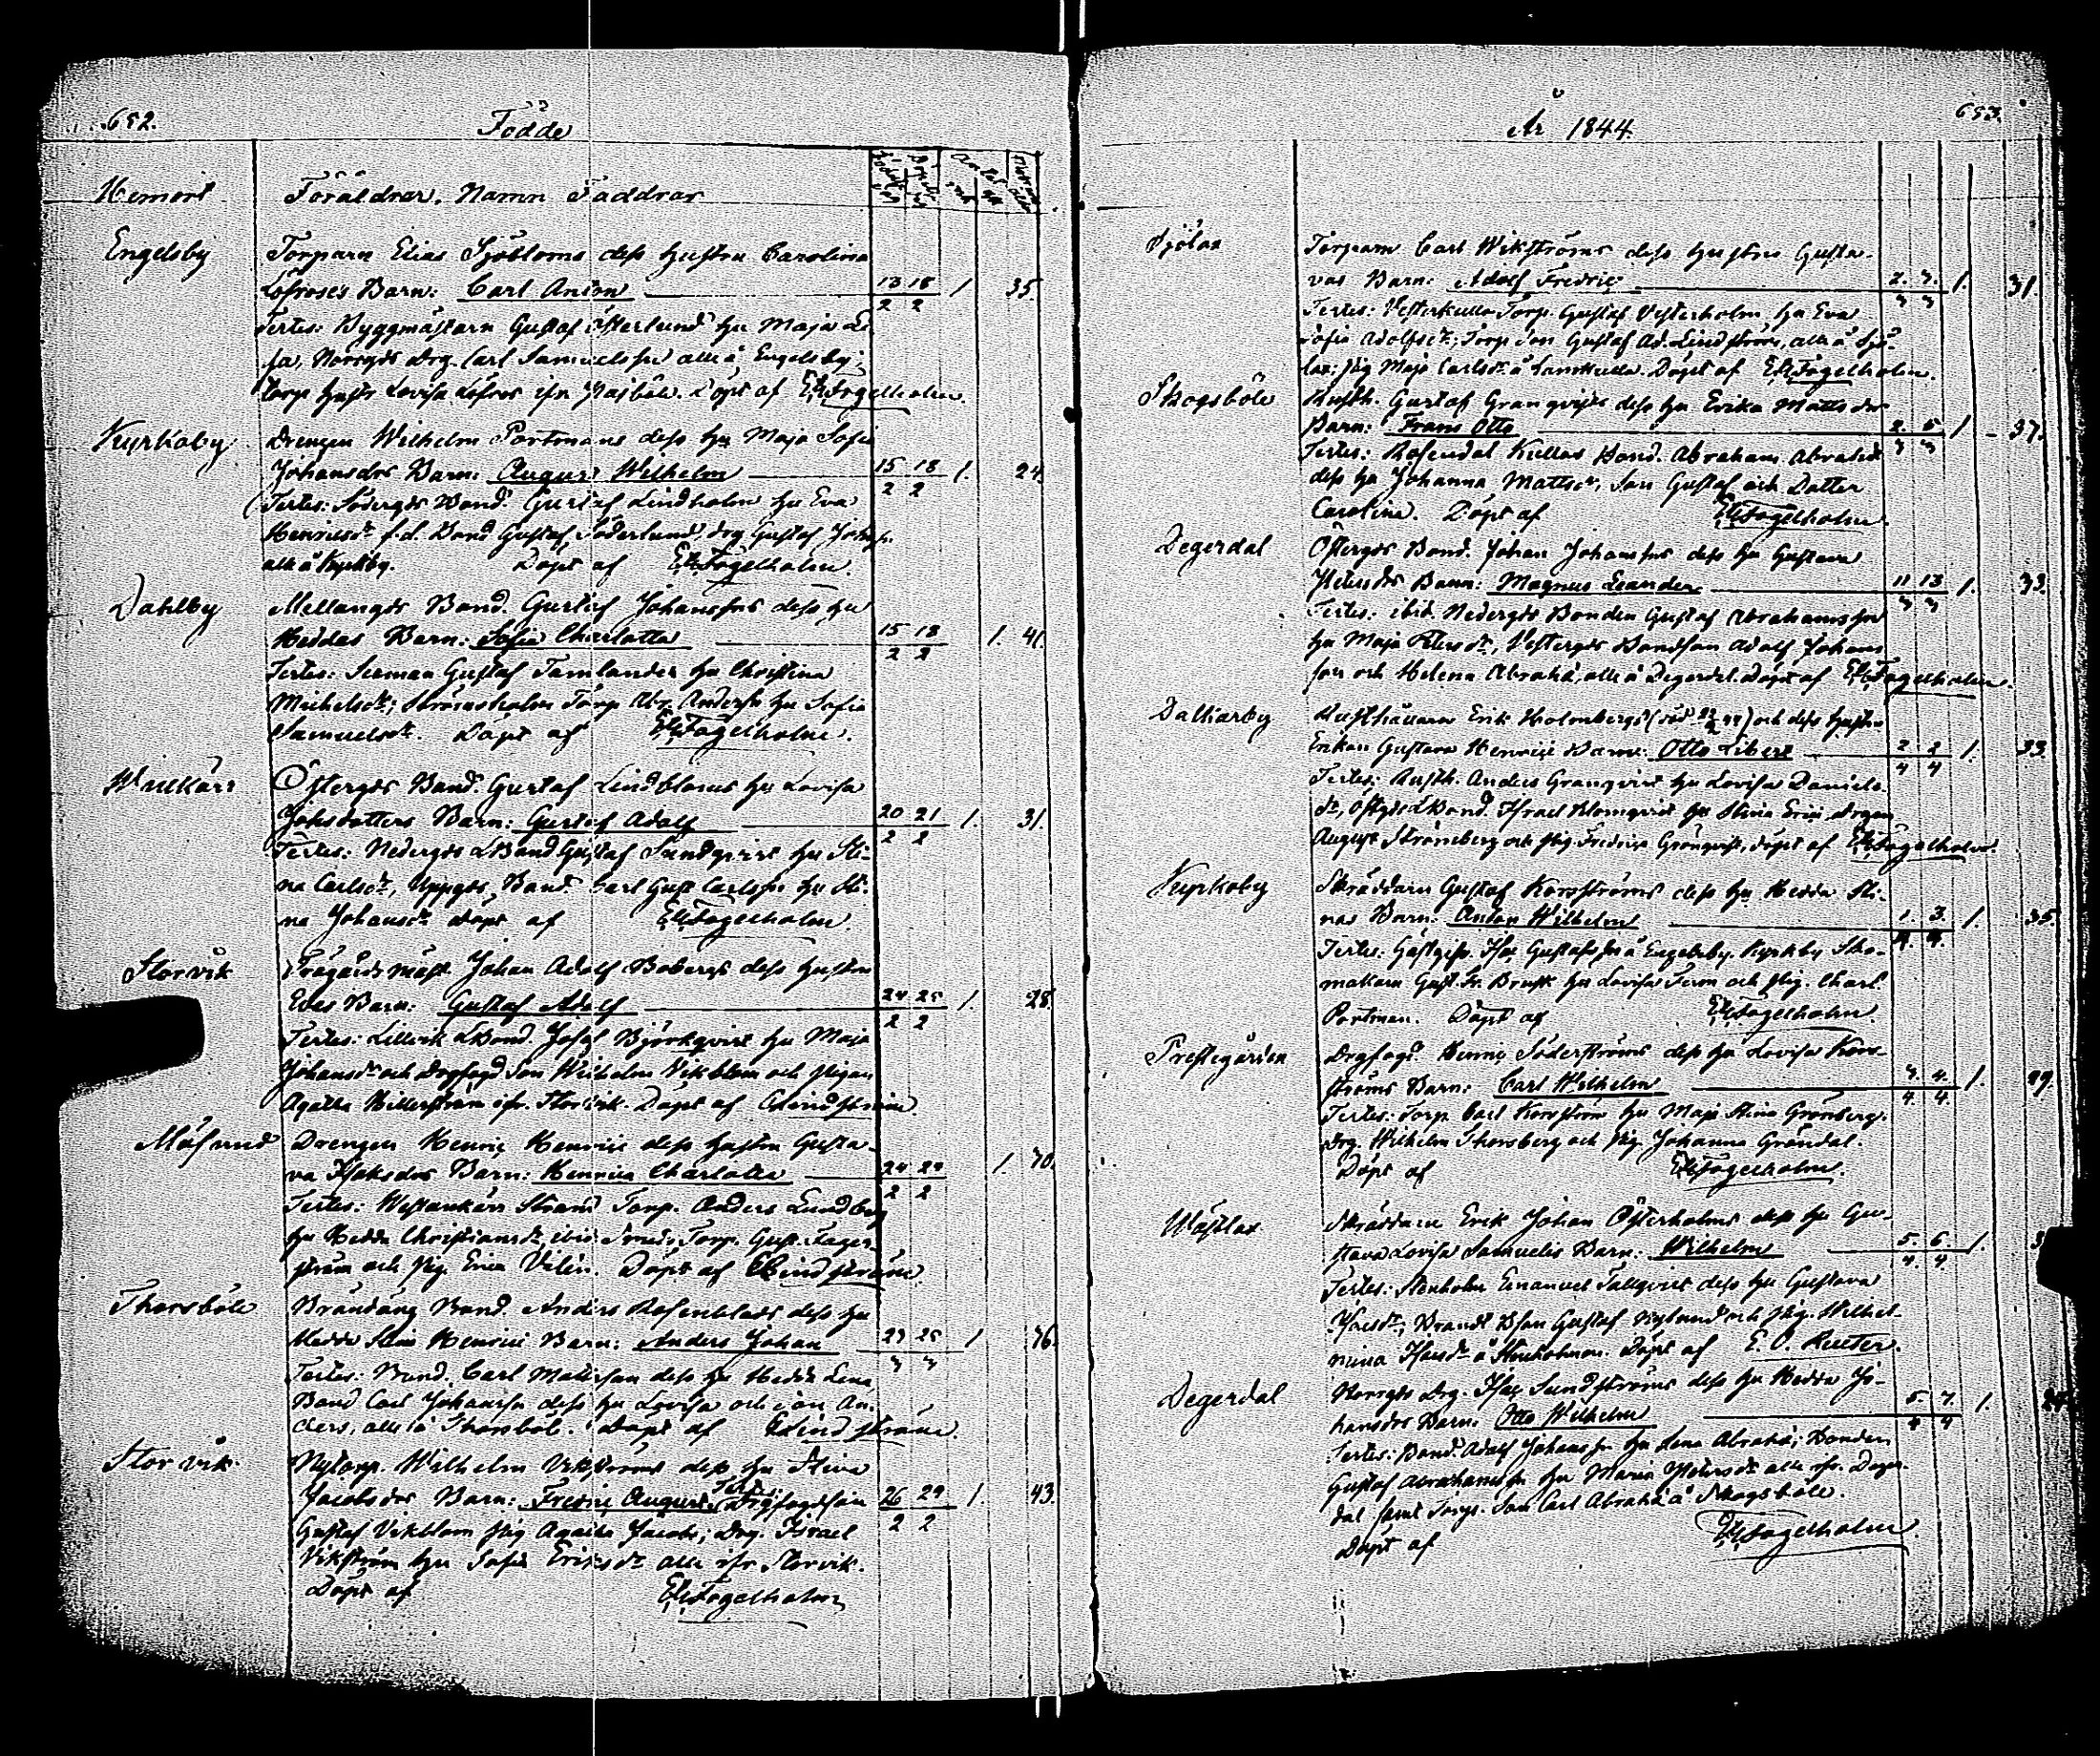 652.
Födde
Hemort
Föräldrar, Namn Faddrar
Engelsby
Torparn Elias Sjöbloms dess hustru Carolina
Löfroses Barn: Carl Anton 13 18 1 35.
2 2
Testes: Byggmästarn Gustaf Österlund hu Maja Li-
sa, Norrgds drg. Carl Samuelsson alla å Engelsby;
torp hustr Lovisa Löfros ifn
Döpt af E.E. Fogelholm.
Kyrkoby
Drengen Wilhelm Portmans dess hu Maja Sofia
Johansdrs Barn: August Wilhelm 15 18 1. 24.
2 2
Testes: Södergds Bond. Gustaf Lindholm hu Eva
Henricsdr f.d. Bond Gustaf Söderlund, drg Gustaf Johnss.
alla å Kyrkby. Döpt af E.E. Fogelholm.
Dahlby
Mellangds Bond. Gustaf Johanssons dess hu
Heddas Barn: Sofia Charlotta 15 18 1. 41.
2 2
Testes: Gustaf Tamlander hu Christina
Michelsdr; Strömsholm Torp Abr. Anderss hu Sofia
Samuelsdr. Döpt af E.E. Fogelholm.
Östergds Bond. Gustaf Lindbloms hu Lovisa
Johsdotters Barn: Gustaf Adolf 20 21 1. 31.
2 2
Testes: Nedergds LBond Gustaf Sundqvist hu Sti-
na Carlsdr, Uppgds Bond. Carl Gust Carlsson hu Sti-
na Johansdr Döpt af E.E. Fogelholm.
Storvik
Trägårdsmäst. Johan Adolf Bobergs dess hustru
Edes Barn: Gustaf Adolf 24 25 1. 28.
2 2
Testes: Lillvik LBond. Josef Björkqvist hu Maja
Johansdr och Drgfogd Son Wilhelm Vikblom och pigan
Agatha Hillerström ifr. Storvik. Döpt af CLindström.
Måsund
Drengen Henric Henrics dess hustru Gusta-
va Isaksdrs Barn: Henrica Charlotta 24 29 1. 40.
2 2
Testes: Westankärr Strand Torp. Anders Lundberg
hu Hedda Christiansdr, ibid. Smeds Torp. Gust. Fager-
ström och pig. Erica Velin. Döpt af CLindström.
Thorsböle
Brändäng Bond. Anders Rosenblads dess hu
Hedda Stina Henrics Barn: Anders Johan 23 25 1. 46.
3 3
Testes: Bond. Carl Mattsson dess hu Hedda Lena,
Bond Carl Johansson dess hu Lovisa och son An-
ders, alla å Thorsböle. Döpt af CLindström.
Storvik
Nytorp. Wilhelm Vikströms dess hu Stina
Jacobsdrs Barn: Fredric August. Testes: Drgfogdson 26 29 1. 43.
2 2
Gustaf Vikblom pig Agatha Jacobs; Drg. Israel
Vikström hu Sofia Ericsdr alla ifr Storvik.
Döpt af E.E. Fogelholm
År 1844.
653.
Sjölax
Torparn Carl Wikströms dess hustru Gusta-
vas Barn: Adolf Fredric 2. 3. 1. 31.
3 3
Testes: Vesterkulla Torp. Gustaf Vesterholm hu Eva
Sofia Adolfsdr; Torp son Gustaf Ad. Lindström, alla å Sjö-
lax; pig Maja Carlsdr å Döpt af E.E. Fogelholm.
Skogsböle
Rusth. Gustaf Granqvists dess hu Erika Mattsdrs
Barn: Frans Otto 2. 5 1 37.
3 3
Testes: Rosendal Kullas Bond. Abraham Abrahams
dess hu Johanna Mattsdr, Son Gustaf och Dotter
Carolina. Döpt af E.E. Fogelholm.
Degerdal
Östergds Bond. Johan Johanssons dess hu Gustava
Petersdrs Barn: Magnus Leander 11 13 1. 33.
3 3
Testes: ibid. Nedergds Bonden Gustaf Abrahamsson
hu Maja Petersdr, Vestergds Bondson Adolf Johans
son och Helena Abrahs, alla å Degerdal. Döpt af E.E. Fogelholm.
Dalkarby
Rusthållaren Erik Holmbergs och dess hustru
Erikas Gustava Henrics Barn: Otto Libert 2 2 1. 33.
4 4
Testes: Rusth. Anders Granqvist hu Lovisa Daniels-
dr, Östgds LBond. Israel Blomqvist hu Stina Erics drgen
August Strömberg och pig. Fredrica Grönqvist, döpt af E.E. Fogelholm.
Kyrkoby
Skräddarn Gustaf Korsströms dess hu Hedda Sti-
nas Barn: Anton Wilhelm 1. 3. 1. 35.
4. 4.
Testes: Gästgifv. Isac Gustafsson å Engelsby. Kyrkby Sko-
makarn Gust. Fr. Brusk hu Lovisa och pig. Charl.
Portman. Döpt af E.E. Fogelholm.
Prestegården
Drgfogd. Henric Söderströms dess hu Lovisa Kors-
ströms Barn: Carl Wilhelm 3. 4. 1. 29.
4. 4.
Testes: Torp. Carl Korsström hu Maja Stina Grönberg.
Drg. Wilhelm Thorsberg och pig. Johanna Gröndal.
Döpt af E.E. Fogelholm.
Skräddarn Erik Johan Österholms dess hu Gus-
tava Lovisa Samuelis Barn: Wilhelm 5. 6. 1. 3
4 4.
Testes: Stenholm Emanuel Tallqvist dess hu Gustava
Isacsdr; Gustaf och pig. Wilhel-
mina Isacsdr å Stenholmen. Döpt af E. O. Reuter.
Degerdal
Norrgds Drg. Isac Sundströms dess hu Hedda Jo-
hansdrs Barn: Otto Wilhelm 5. 7. 1.
4 4
Testes: Bond. Adolf Johansson hu Lena Abrahs; Bonden
Gustaf Abrahamsson hu Maria Petersdr alla ifr. Deger-
dal samt Torp. Son Carl Abrahs å Skogsböle.
Döpt af E.E. Fogelholm.